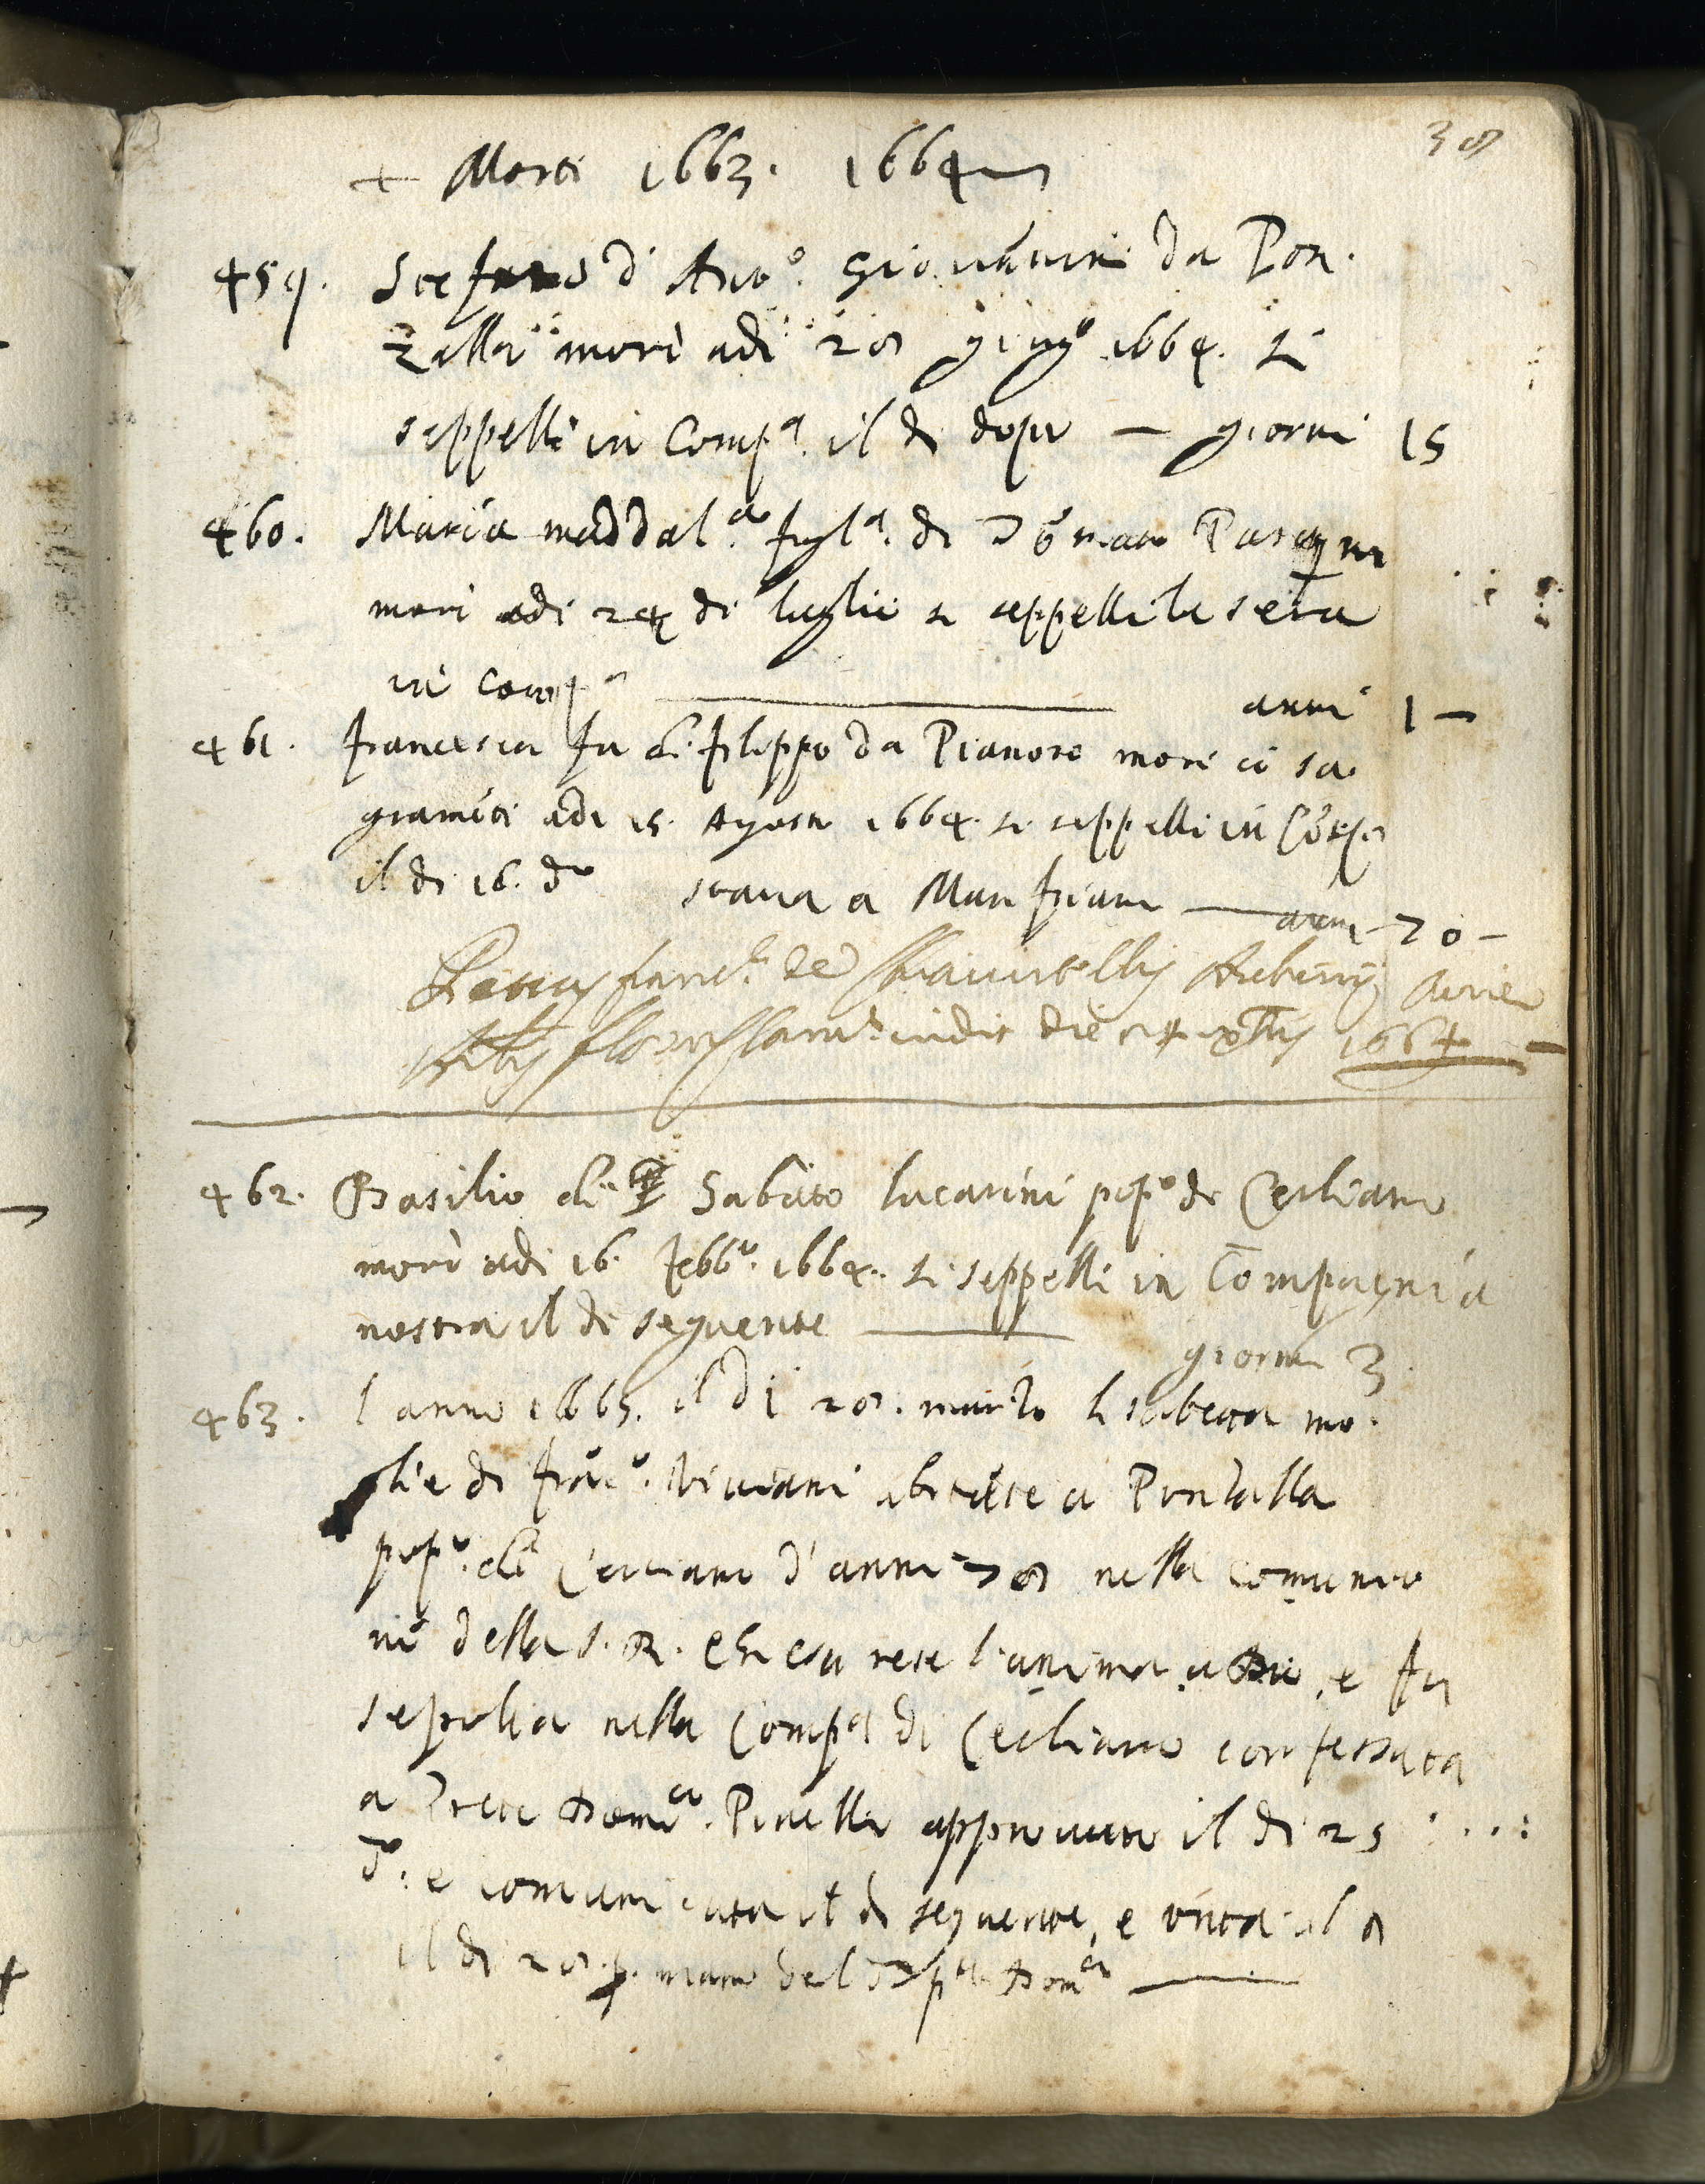 38
+ Morti 1663. 1664
459. Stefano d' Anto. Giouanini da Pon.
zalla morì adi 28 giugo 1664. si
seppelli in Compa. il di dopo — giorni 15
460. Maria maddala. figla. di Tomaso Pasquini
mori adi 24 di luglio si seppelli la sera
in compa anni 1 —
461. Francesca fu di filippo da Pianoro morì cō sa
gramēti adi 15. Agosto 1664. si seppelli in Cōpa
il di 16. do staua a Monfriano — anni 70 —
de 1664
462. Basilio di Sabato lucarini popo di Cerliano
morì adi 16. Febbo. 1664. si seppelli in Compagnia
nostra il di seguente giorni 3
463. l anno 1665. il di 28. marzo lisabetta mo.
glie di frāco. Viuiani abitāte a Ponzalla
popo. di Cerliano d'anni 78 nella comunio
ne della S. R. Chiesa rese l'anima a Dio, e fu
sepolta nella Compa di Cerliano confessata
a Prete Domco. Pinelli approuato il di 25
do. e comunicata il di seguente, e ūta
il di 28. p. mano del do pte Domco